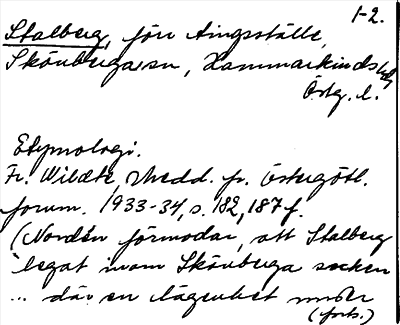 1-2.
Stalberg, förr tingsställe,
Skönberga sn, Hammarkinds hd,
Östg. l.
Etymologi.
Fr. Wildte, Medd. fr. Östergötl.
forum. 1933-34, s. 182, 187 f.
(Nordén förmodar, att Stalberg
legat inom Skönberga socken
... där en lägenhet under
(forts.)